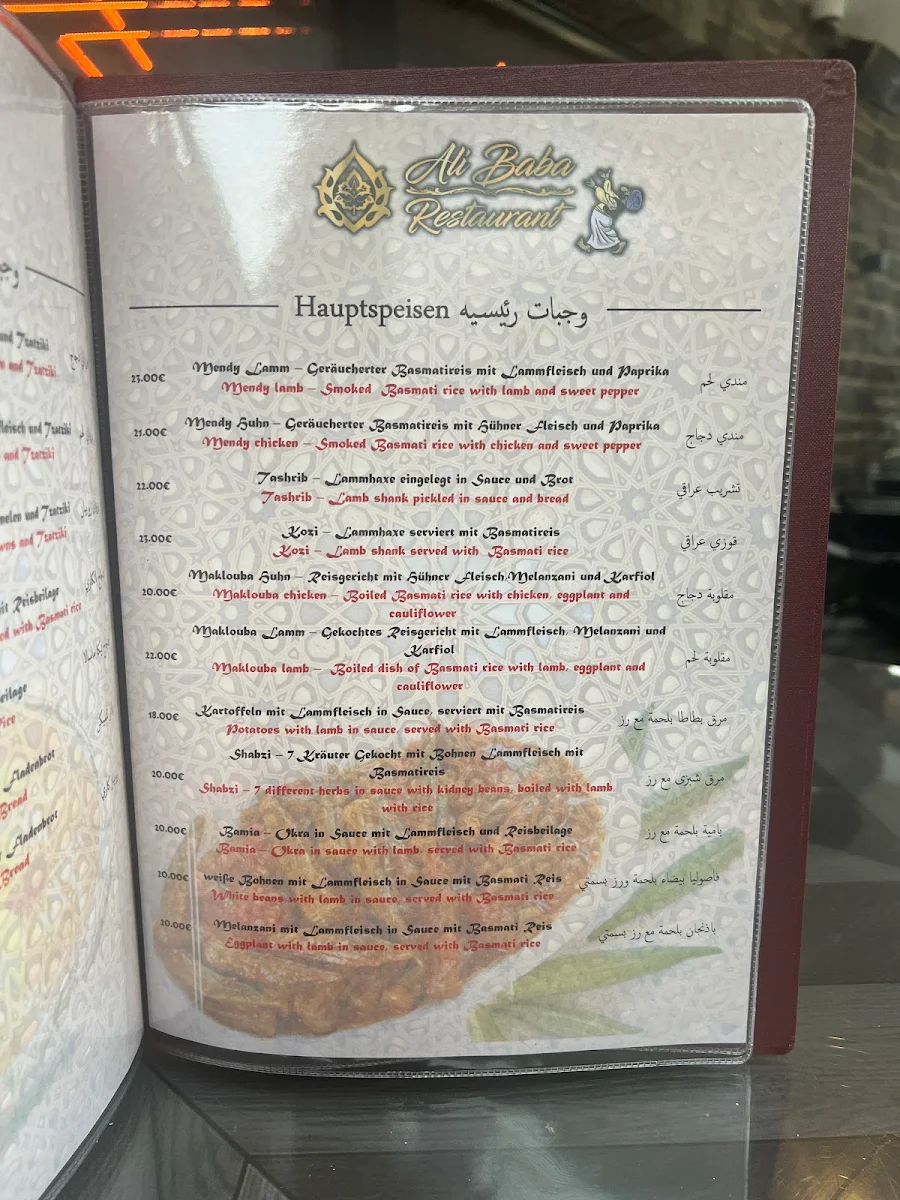 Ali Baba
Restaurant
Hauptspeisen وجبات رئيسيه
23.00€ Mendy Lamm – Geräucherter Basmatireis mit Lammfleisch und Paprika مندي لحم
Mendy lamb – Smoked Basmati rice with lamb and sweet pepper
21.00€ Mendy Huhn – Geräucherter Basmatireis mit Hühner Fleisch und Paprika مندي دجاج
Mendy chicken – Smoked Basmati rice with chicken and sweet pepper
22.00€ Tashrib – Lammhaxe eingelegt in Sauce und Brot تشريب عراقي
Tashrib – Lamb shank pickled in sauce and bread
23.00€ Kozi – Lammhaxe serviert mit Basmatireis قوزي عراقي
Kozi – Lamb shank served with Basmati rice
Maklouba Huhn – Reisgericht mit Hühner Fleisch, Melanzani und Karfiol
20.00€ Maklouba chicken – Boiled Basmati rice with chicken, eggplant and مقلوبة دجاج
cauliflower
Maklouba Lamm – Gekochtes Reisgericht mit Lammfleisch, Melanzani und
Karfiol
22.00€ Maklouba lamb – Boiled dish of Basmati rice with lamb, eggplant and مقلوبة لحم
cauliflower
18.00€ Kartoffeln mit Lammfleisch in Sauce, serviert mit Basmatireis مرق بطاطا بلحمة مع رز
Potatoes with lamb in sauce, served with Basmati rice
Shabzi – 7 Kräuter Gekocht mit Bohnen Lammfleisch mit
Basmatireis
20.00€ Shabzi – 7 different herbs in sauce with kidney beans, boiled with lamb مرق شبزى مع رز
with rice
20.00€ Bamia – Okra in Sauce mit Lammfleisch und Reisbeilage بامية بلحمة مع رز
Bamia – Okra in sauce with lamb, served with Basmati rice
20.00€ weiße Bohnen mit Lammfleisch in Sauce mit Basmati Reis فاصوليا بيضاء بلحمة ورز بسمتي
White beans with lamb in sauce, served with Basmati rice
20.00€ Melanzani mit Lammfleisch in Sauce mit Basmati Reis باذنجان بلحمة مع رز بسمتي
Eggplant with lamb in sauce, served with Basmati rice
und Tzatziki
and Tzatziki
und Tzatziki
and Tzatziki
und Tzatziki
and Tzatziki
Reisbeilage
with Basmati rice
Fladenbrot
Bread
Fladenbrot
Bread